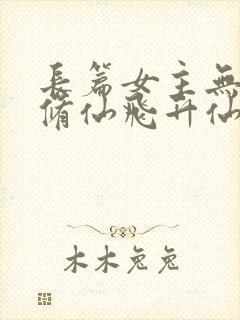 長篇女主無
脩仙飛升仙
木木兔兔